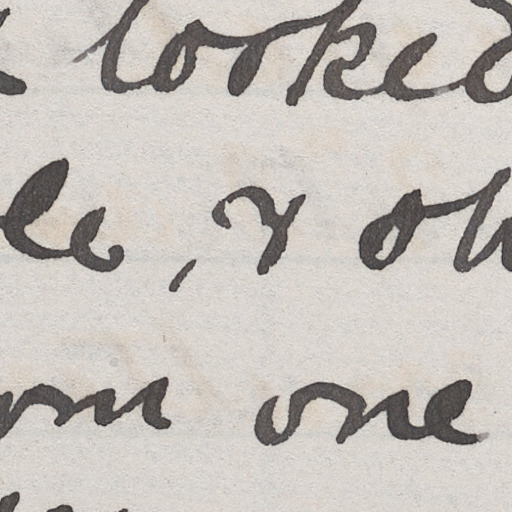 looked
le, & oh
om one